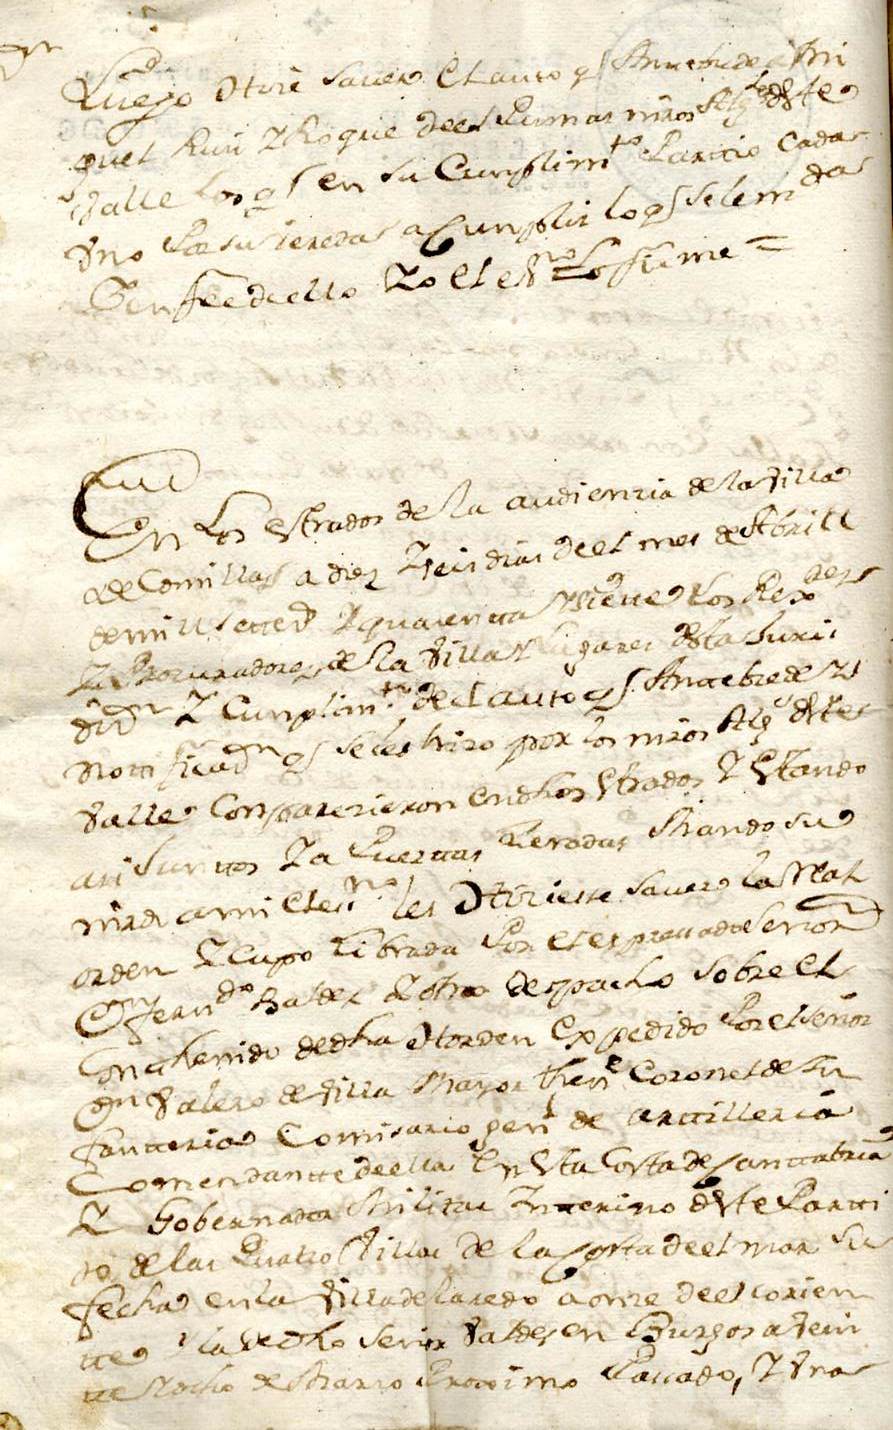 Luego Hize saver el auto q.e Antezede a Mi
guel Ruiz y Roque de el Pumar mros Alg.es deste
Valle los q.e en su Cumplim.to Partio Cada
Uno a sus Veredas a Cumplir lo q.e se le m.da
Y en fee de ello Yo el es.no lo firme =
En Los estrados de la audienzia de la Villa
de Comillas a diez y seis dias de el mes de Abrill
de mill settez.s y quarenta y nueve Los Rex.res
y Procuradores de la Villa y lugares desta Juris
diz.on y Cumplim.to de el auto q.e Antezede y
notificaz.on q.e se les hizo por los mros Alg.es deste
Valle Comparezieron en dhos estrados y estando
asi Juntos y a Puertas Zerradas Mando su
mrd a mi el es.no les Hiziesse Saver la Real
orden y Cupo librada Por el espressado Señor
D.n Fern.do Valdes y otro despacho sobre el
Conthenido de dha Horden expedido Por el Señor
D.n Valero de Villa Mayor then.e Coronel de In
fanteria Comisario gen.l de artilleria
Comendante de ella En esta Costa de Canttabria
y Gobernador Militar Ynterino deste Parti
do de las Quatro Villas de la Costa de el mar su
fecha en la Villa de Laredo a onze de el corien
te y la de dho Señor Valdes en Burgos a Vein
te y ocho de Marzo Proximo Passado, y Una